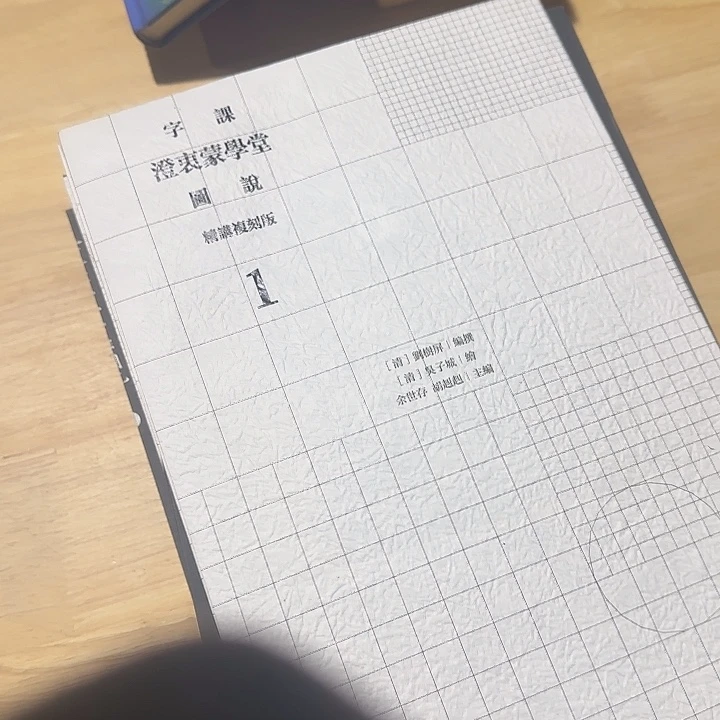 字 課
澄衷蒙學堂
圖 說
精講複刻版
1
［清］劉樹屏｜編撰
［清］吳子城｜繪
余世存 胡趙趙｜主編